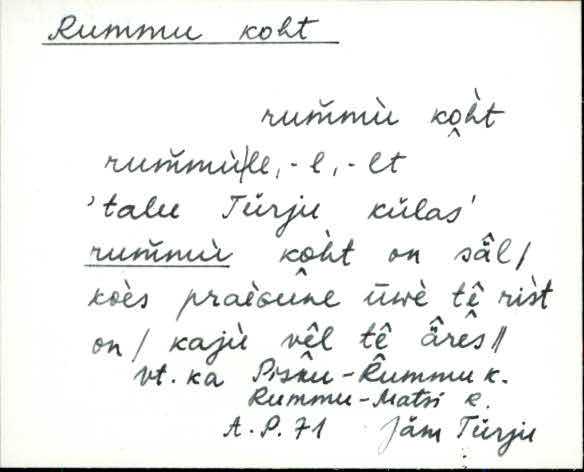 Rummu koht
rum̆mù ko̭h̀t
rum̆mù|le, -l, -lt
'talu Türju külas'
rum̆mù ko̭h̀t on sä̂l/
koès praèGune ūwè tê rist
on/ kajù vêl tê ä̂rês//
vt. ka Pisku-Rummu k.
Rummu-Matsi k.
A. P. 71 Jäm Türju